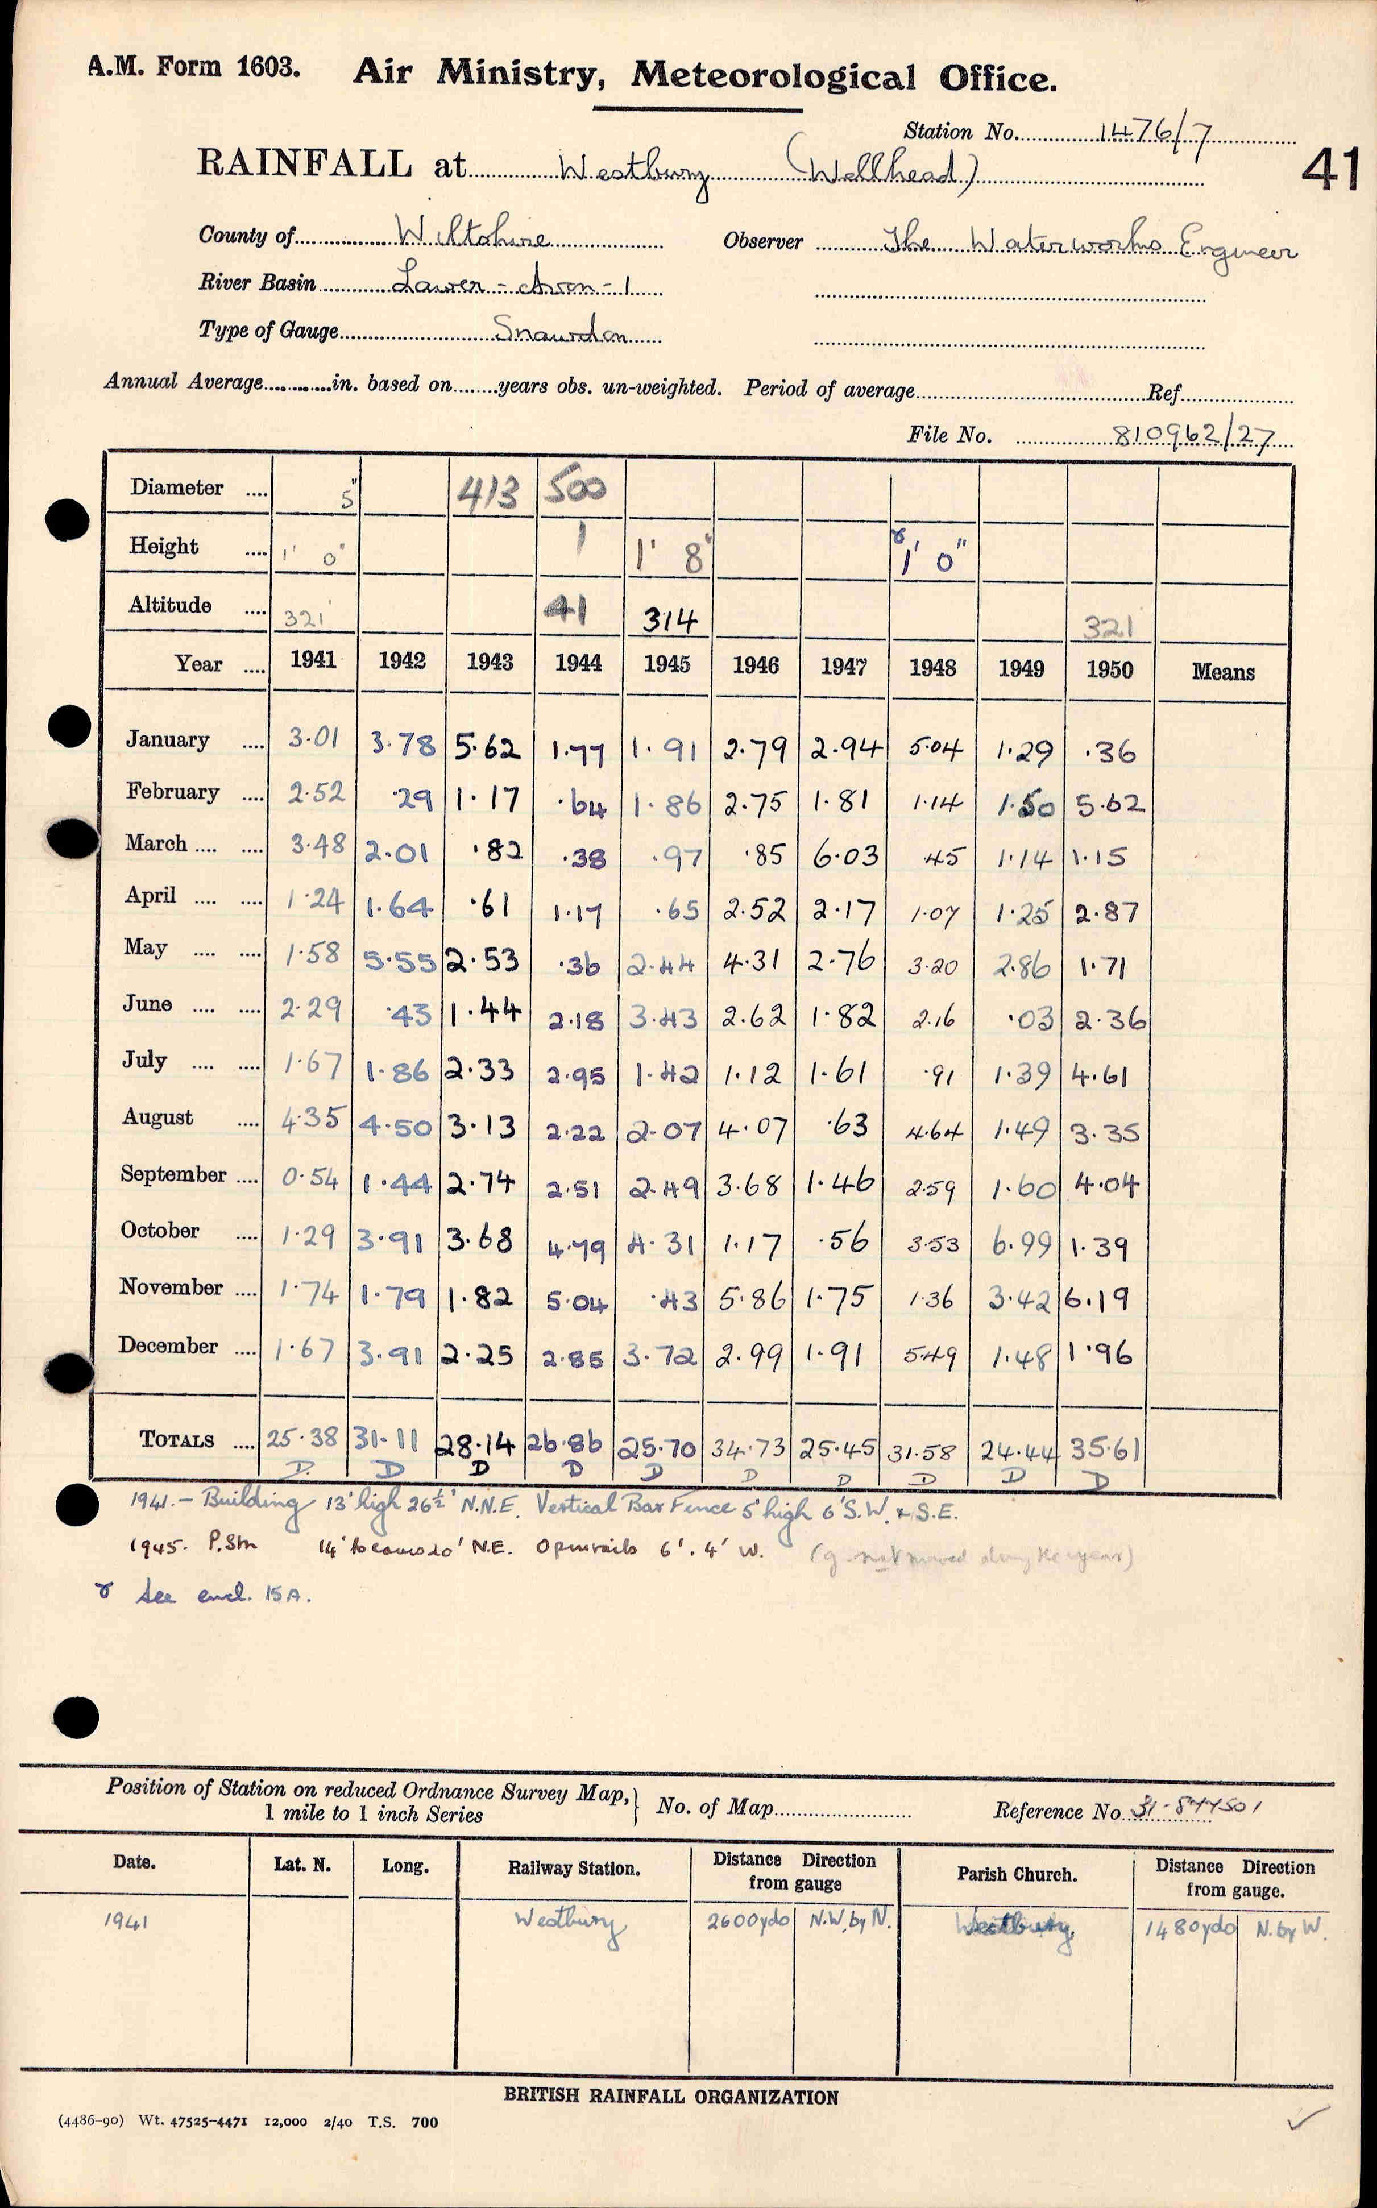 A.M. Form 1603. Air Ministry, Meteorological Office.
Station No. 1476/7
RAINFALL at Westbury (Wellhead)
41
County of Wiltshire Observer The Waterworks Engineer
River Basin Lower - Avon - 1
Type of Gauge Snowdon
Annual Average............in. based on........years obs. un-weighted. Period of average Ref.
File No. 810962/27
Diameter .... 5" 413 500
Height .... 1' 0" 1 1' 8" 1' 0"
Altitude .... 321' 41 314 321
Year .... 1941 1942 1943 1944 1945 1946 1947 1948 1949 1950 Means
January .... 3.01 3.78 5.62 1.77 1.91 2.79 2.94 5.04 1.29 .36
February .... 2.52 .29 1.17 .64 1.86 2.75 1.81 1.14 1.50 5.62
March .... .... 3.48 2.01 .82 .38 .97 .85 6.03 .45 1.14 1.15
April .... .... 1.24 1.64 .61 1.17 .65 2.52 2.17 1.07 1.25 2.87
May .... .... 1.58 5.55 2.53 .36 2.44 4.31 2.76 3.20 2.86 1.71
June .... .... 2.29 .43 1.44 2.18 3.43 2.62 1.82 2.16 .03 2.36
July .... .... 1.67 1.86 2.33 2.95 1.42 1.12 1.61 .91 1.39 4.61
August .... 4.35 4.50 3.13 2.22 2.07 4.07 .63 4.64 1.49 3.35
September .... 0.54 1.44 2.74 2.51 2.49 3.68 1.46 2.59 1.60 4.04
October .... 1.29 3.91 3.68 4.79 4.31 1.17 .56 3.53 6.99 1.39
November .... 1.74 1.79 1.82 5.04 .43 5.86 1.75 1.36 3.42 6.19
December .... 1.67 3.91 2.25 2.85 3.72 2.99 1.91 5.49 1.48 1.96
TOTALS .... 25.38 31.11 28.14 26.86 25.70 34.73 25.45 31.58 24.44 35.61
D. D D D D D D D D D
1941. - Building 13' high 26½' N.N.E. Vertical Bar Fence 5' high 6' S.W. & S.E.
1945. P.Stn 14' 20' N.E. Open rails 6'. 4' W. not moved during the year)
See encl. 15A.
Position of Station on reduced Ordnance Survey Map, 1 mile to 1 inch Series } No. of Map Reference No. 31-
Date. Lat. N. Long. Railway Station. Distance Direction from gauge Parish Church. Distance Direction from gauge.
1941 Westbury 2600 yds N.W. by N. Westbury 1480 yds N. by W.
BRITISH RAINFALL ORGANIZATION
(4486-90) Wt. 47525-4471 12,000 2/40 T.S. 700